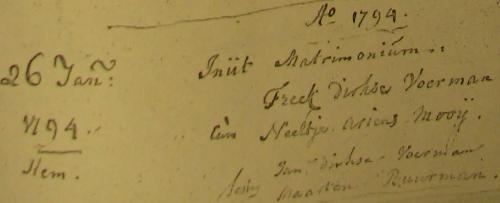 Aº 1794.
26 Janr: Iniit Matrimonium:
Freek dirkse Voerman
1794. cùm Neeltje ariens Mooij.
Item.
Jan dirkse Voerman
testes Maarten Buurman.